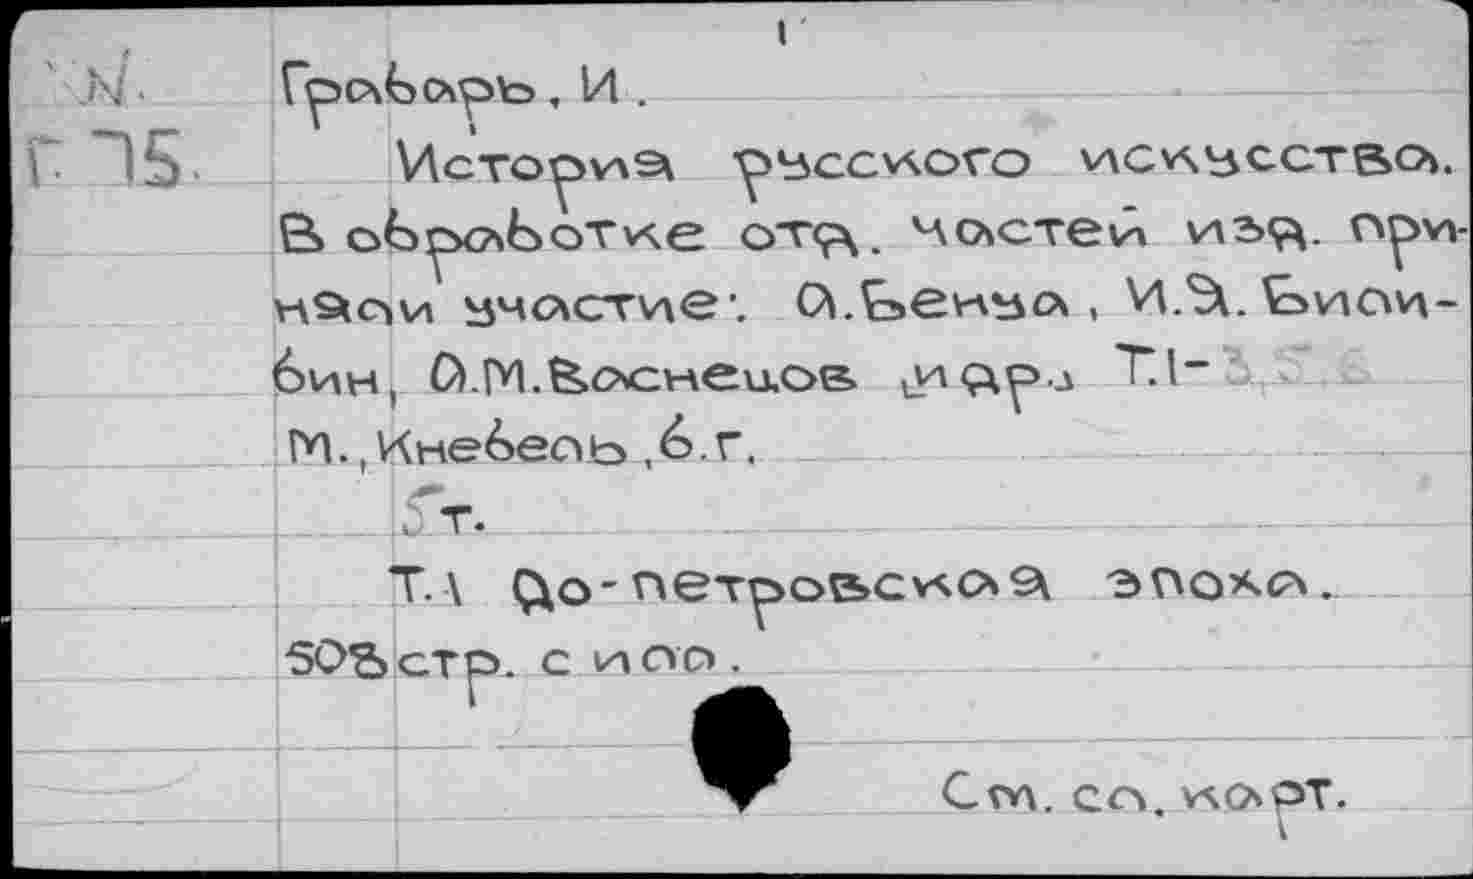 N.
Г. 75.
Грабарь, И.
История русского искусства.
В обработке отд. частей изд. при-
няли участие: А.Бенуа, И.Я. Били-
бин, А.М.Васнецов [и др.] Т.1-3,5,6
М., Кнебель, б.г.
5 т.
Т.1 До-петровская эпоха.
508 стр. с илл.
См. сл. карт.